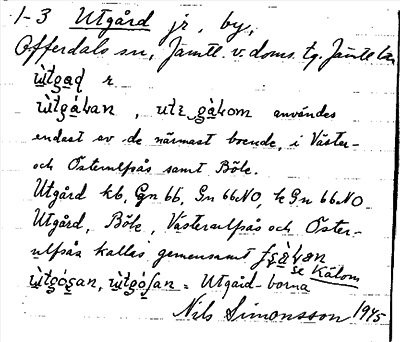 1-3 Utgård jr, by,
Offerdals sn, Jämtl. v. doms. tg. Jämtl. län
ùtgaḍ r
ùtgàkan, ute gàkom användes
endast av de närmast boende, i Väster-
och Österulfsås samt Böle.
Utgård kb, Gn 66, Gn 66 NO, k Gn 66 NO.
Utgård, Böle, Västerulfsås och Öster-
ulfsås kallas gemensamt
se Kålom
= Utgård-borna
Nils Simonsson 1945